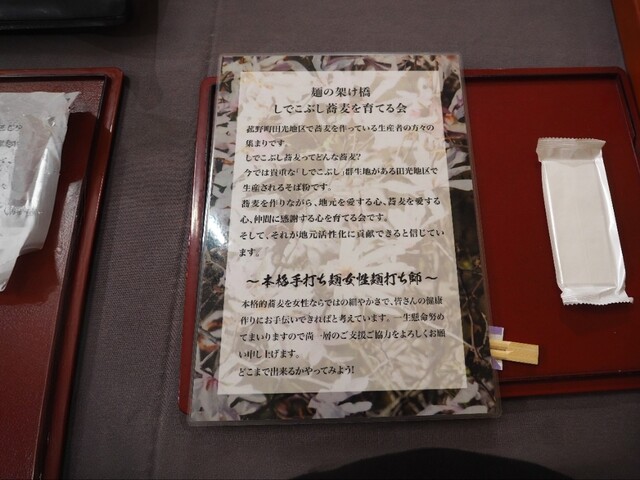 麺の架け橋
しでこぶし蕎麦を育てる会
菰野町田光地区で蕎麦を作っている生産者の方々の
集まりです
しでこぶし蕎麦ってどんな蕎麦?
今では貴重な「しでこぶし」群生地がある田光地区で
生産されるそば粉です。
蕎麦を作りながら、地元を愛する心、蕎麦を愛する
心、仲間に感謝する心を育てる会です。
そして、それが地元活性化に貢献できると信じてい
ます。
～本格手打ち麺女性麺打ち師～
本格的蕎麦を女性ならではの細やかさで、皆さんの健康
作りにお手伝いできればと考えています。一生懸命努め
てまいりますので尚一層のご支援ご協力をよろしくお願
い申し上げます。
どこまで出来るかやってみよう!